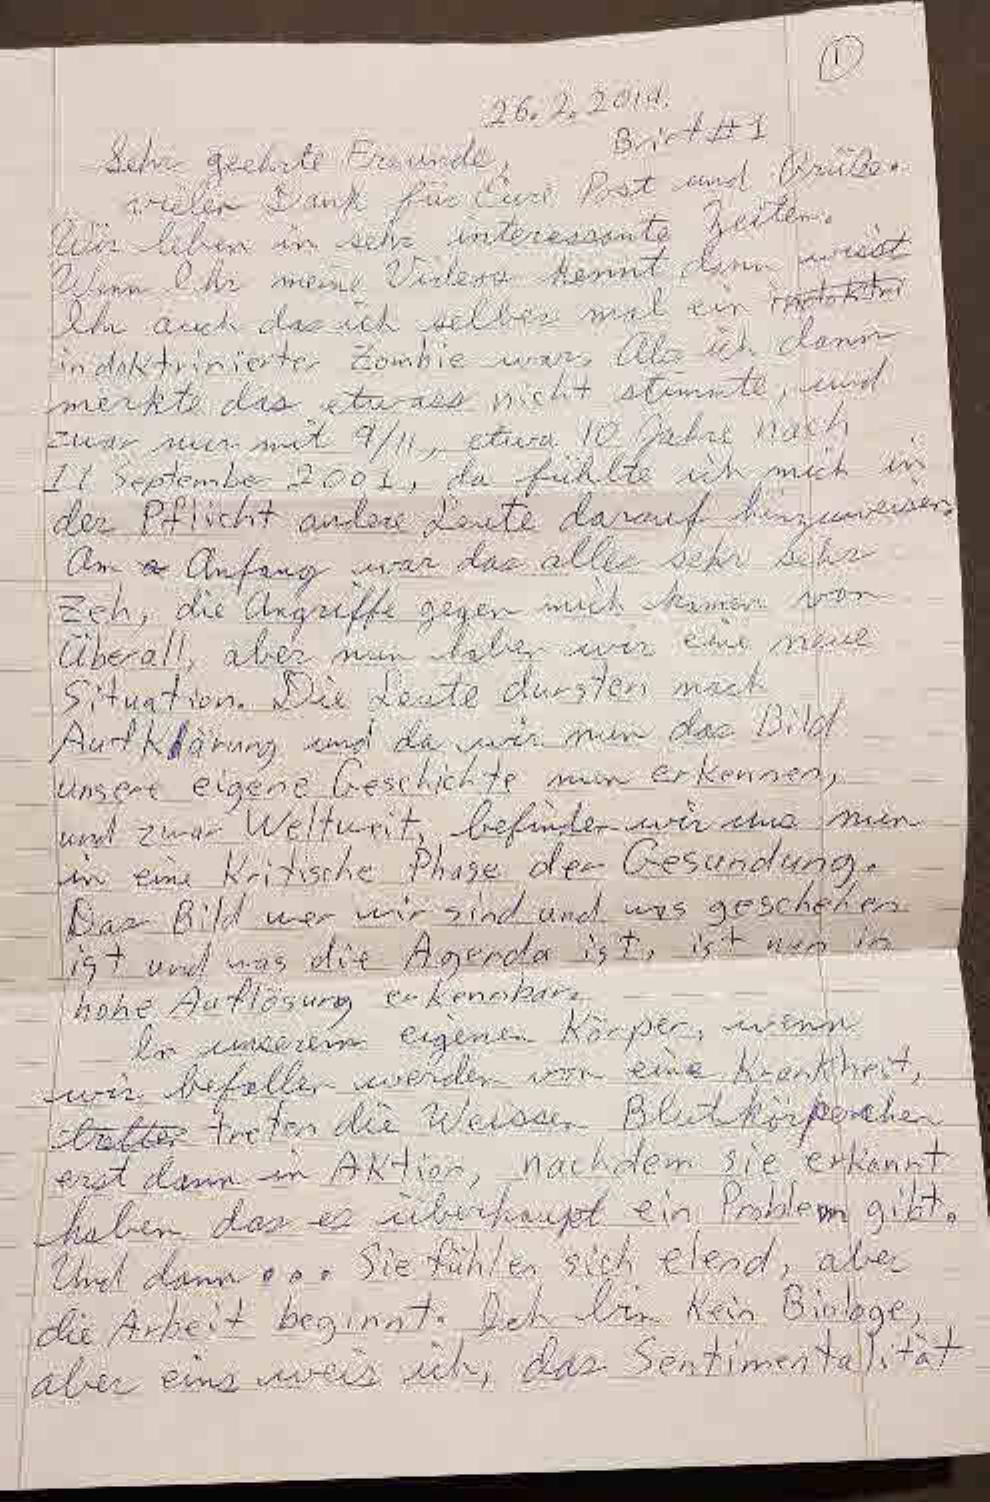 ①
26.2.2014.
Brief #1
Sehr geehrte Freunde,
vielen Dank für Eure Post und Grüße.
Wir leben in sehr interessante Zeiten.
Wenn Ihr meine Videos kennt dann wisst
Ihr auch das ich selber mal ein
indoktrinierter Zombie war. Als ich dann
merkte das etwass nicht stimmte, und
zwar nur mit 9/11, etwa 10 Jahre nach
11 September 2001, da fühlte ich mich in
der Pflicht andere Leute darauf hinzuweisen.
Am Anfang war das alles sehr sehr
Zeh, die Angriffe gegen mich kamen von
Überall, aber nun haben wir eine neue
Situation. Die Leute dursten nach
Aufklärung und da wir nun das Bild
unsere eigene Geschichte nun erkennen,
und zwar Weltweit, befinden wir uns nun
in eine Kritische Phase der Gesundung.
Das Bild wer wir sind und was geschehen
ist und was die Agenda ist, ist nun in
hohe Auflösung erkennbar.
In unserem eigenen Körper, wenn
wir befallen werden von eine Krankheit,
treten die Weissen Blutkörperchen
erst dann in Aktion, nachdem sie erkannt
haben das es überhaupt ein Problem gibt.
Und dann... Sie fühlen sich elend, aber
die Arbeit beginnt. Ich bin Kein Biologe,
aber eins weis ich, das Sentimentalität